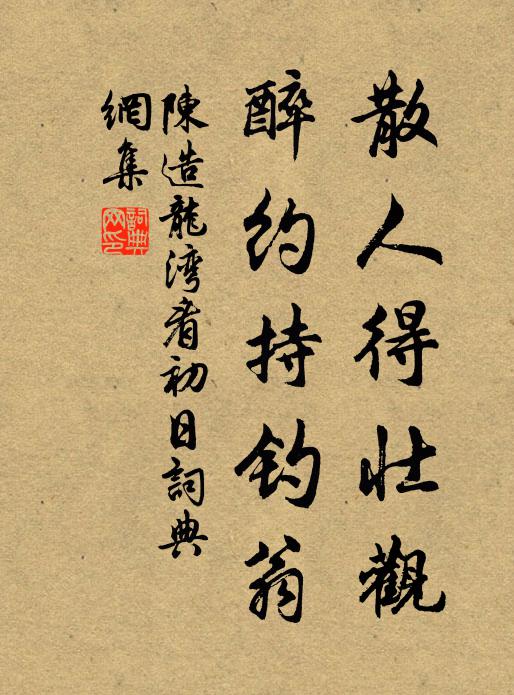 散人得壯觀
醉約持釣翁
陳造龍灣看初日詞典
網集
詞典
网印